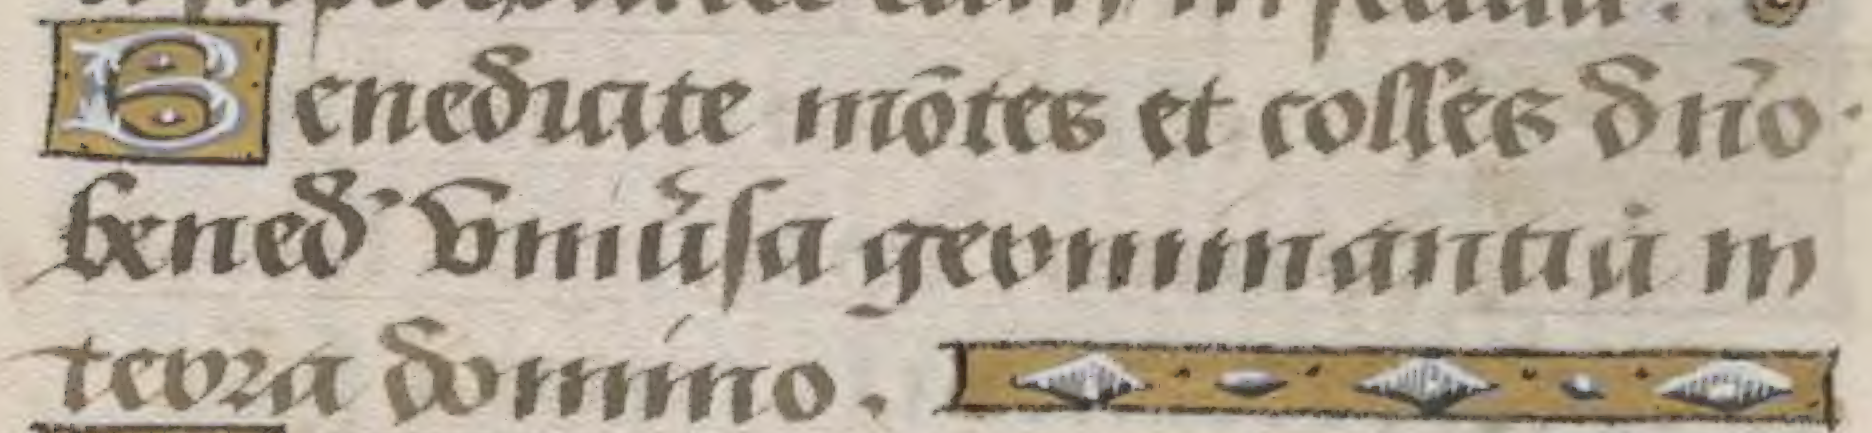 in secula.
Benedicite mōtes et colles dn̄o.
bened' vniūsa germinantiū in
terra domino.